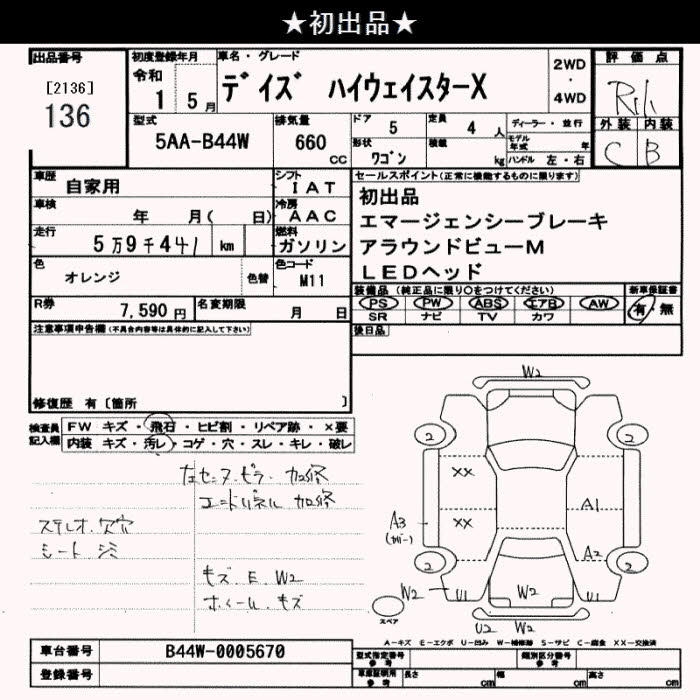 ★初出品★
出品番号
[2136]
136
初度登録年月
令和
1 5月
車名・グレード
デイズ ハイウェイスターX
2WD
・
4WD
評価点
外装 内装
C B
型式
5AA-B44W
排気量
660
cc
ドア 5
定員 4 人
形状 ワゴン
積載 kg
ディーラー・並行
モデル年式 年
ハンドル 左・右
車歴 自家用
シフト IAT
車検 年 月( 日)
冷房 AAC
走行 5万9千441 km
燃料 ガソリン
色 オレンジ
色替
色コード M11
R券 7,590円
名変期限 月 日
セールスポイント(正常に機能するものに限ります)
初出品
エマージェンシーブレーキ
アラウンドビューM
LEDヘッド
装備品(純正品に限り○をつけてください)
新車保証書
PS PW ABS エアB AW
有・無
SR ナビ TV カワ
後日品
注意事項申告欄(不具合内容等は具体的に記入して下さい)
修復歴 有〔箇所 〕
検査員記入欄
FW キズ・飛石・ヒビ割・リペア跡・×要
内装 キズ・汚レ・コゲ・穴・スレ・キレ・破レ
左センターピラー 加修
エンドパネル 加修
ステレオ欠穴
シート シミ
キズ E W2
ホイールキズ
W2
2 2
XX
XX
A1
A3
(カバー)
A2
2 2
W2
U1
W2
U1
スペア
U2 W2
A-キズ E-エクボ U-凹み W-補修跡 S-サビ C-腐食 XX-交換済
車台番号 B44W-0005670
登録番号
型式指定番号 参考
類別区分番号 参考
車庫証明用 参考
長さ cm
幅 cm
高さ cm